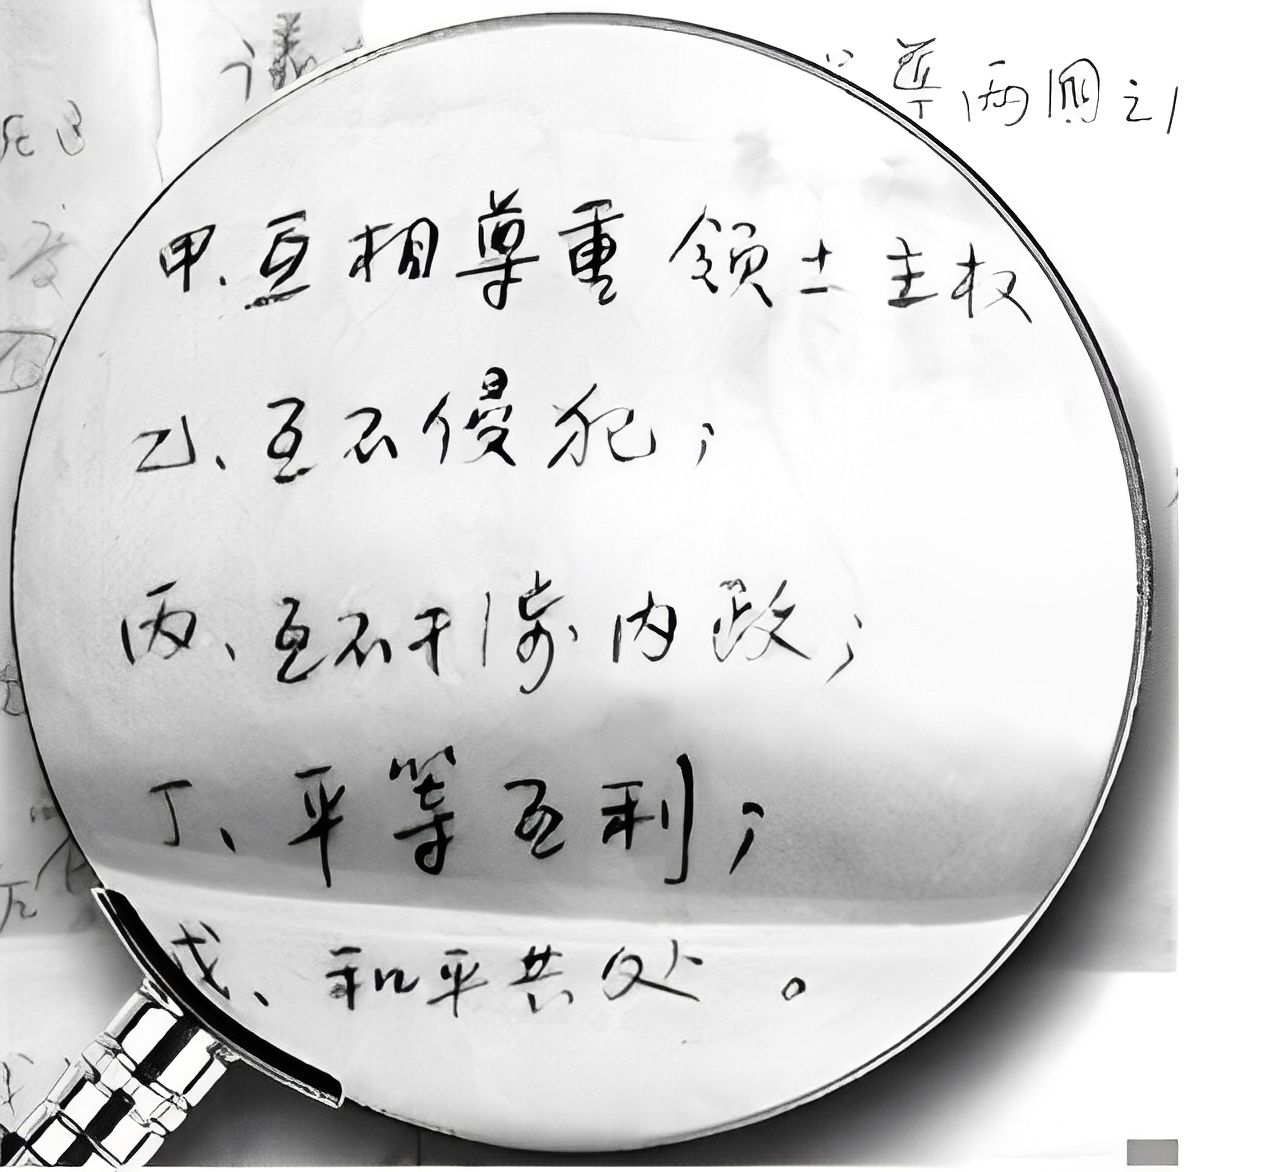 两國之
甲、互相尊重領土主权
乙、互不侵犯；
丙、互不干涉内政；
丁、平等互利；
戊、和平共处。